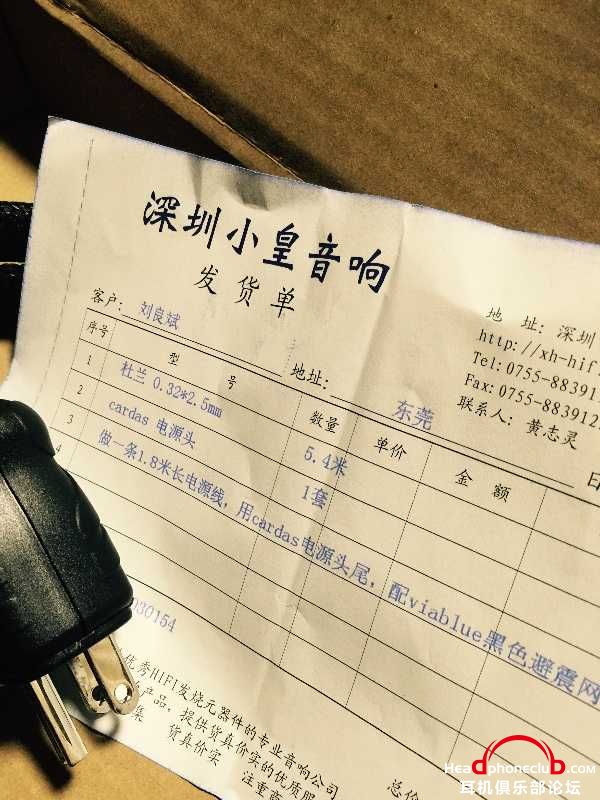 深圳小皇音响
发货单
地 址: 深圳
http://xh-hif
Tel:0755-88391
Fax:0755-883912
联系人: 黄志灵
客户: 刘良斌
地址: 东莞
序号 型 号 数量 单价 金 额
1 杜兰 0.32*2.5mm 5.4米
2 cardas 电源头 1套
3 做一条1.8米长电源线, 用cardas电源头尾, 配viablue黑色避震网
4
030154
优秀HIFI发烧元器件的专业音响公司
产品, 提供货真价实的优质服
集 货真价实 注重
总价
Headphoneclub.com
耳机俱乐部论坛